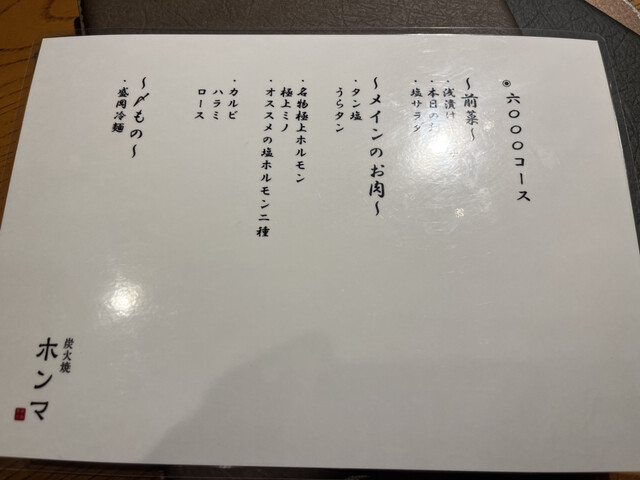 ◉ 六〇〇〇コース
～前菜～
・浅漬け
・本日の
・塩サラダ
～メインのお肉～
・タン塩
うらタン
・名物極上ホルモン
極上ミノ
・オススメの塩ホルモン二種
・カルビ
ハラミ
ロース
～〆もの～
・盛岡冷麺
炭火焼
ホンマ